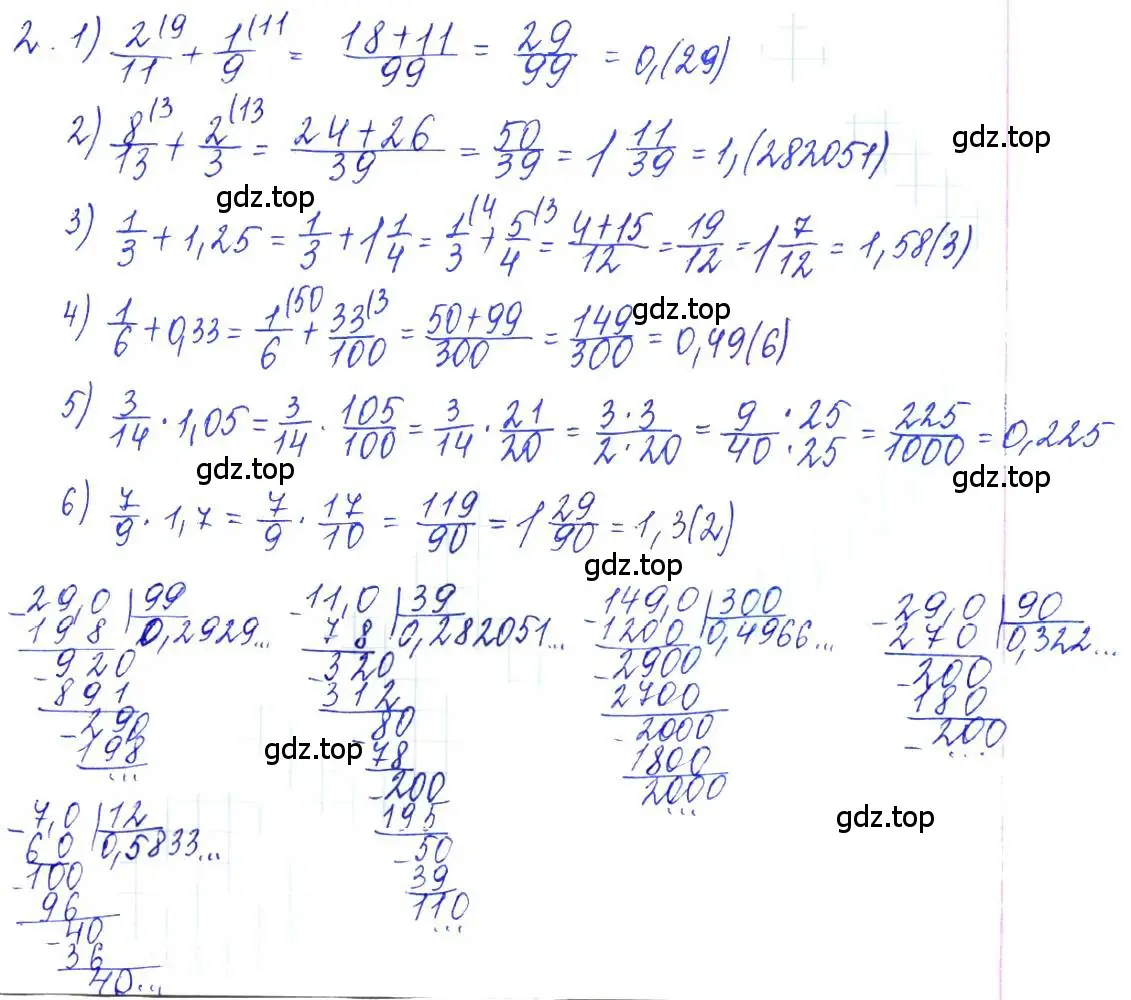 2. 1) 2/11 (9 + 1/9 (11 = (18+11)/99 = 29/99 = 0,(29)
2) 8/13 (3 + 2/3 (13 = (24+26)/39 = 50/39 = 1 11/39 = 1,(282051)
gdz.top
gdz.top
3) 1/3 + 1,25 = 1/3 + 1 1/4 = 1/3 (4 + 5/4 (3 = (4+15)/12 = 19/12 = 1 7/12 = 1,58(3)
4) 1/6 + 0,33 = 1/6 (50 + 33/100 (3 = (50+99)/300 = 149/300 = 0,49(6)
gdz.top
5) 3/14 · 1,05 = 3/14 · 105/100 = 3/14 · 21/20 = (3·3)/(2·20) = 9/40 ·25/·25 = 225/1000 = 0,225
gdz.top
gdz.top
6) 7/9 · 1,7 = 7/9 · 17/10 = 119/90 = 1 29/90 = 1,3(2)
gdz.top
-29,0 | 99
198 | 0,2929...
-920
891
-290
198
...
-11,0 | 39
78 | 0,282051...
-320
312
-80
78
-200
195
-50
39
110
...
-149,0 | 300
1200 | 0,4966...
-2900
2700
-2000
1800
2000
...
-29,0 | 90
270 | 0,322...
-200
180
-200
...
gdz.top
-7,0 | 12
60 | 0,5833...
-100
96
-40
36
40...
gdz.top